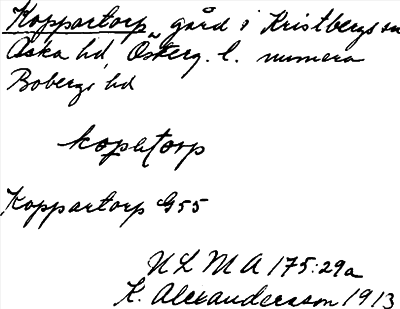 Koppartorp gård i Kristbergs sn
Aska hd, Österg. l. numera
Bobergs hd
kopatorp
Koppartorp G55
ULMA 175:29a
K. Alexandersson 1913